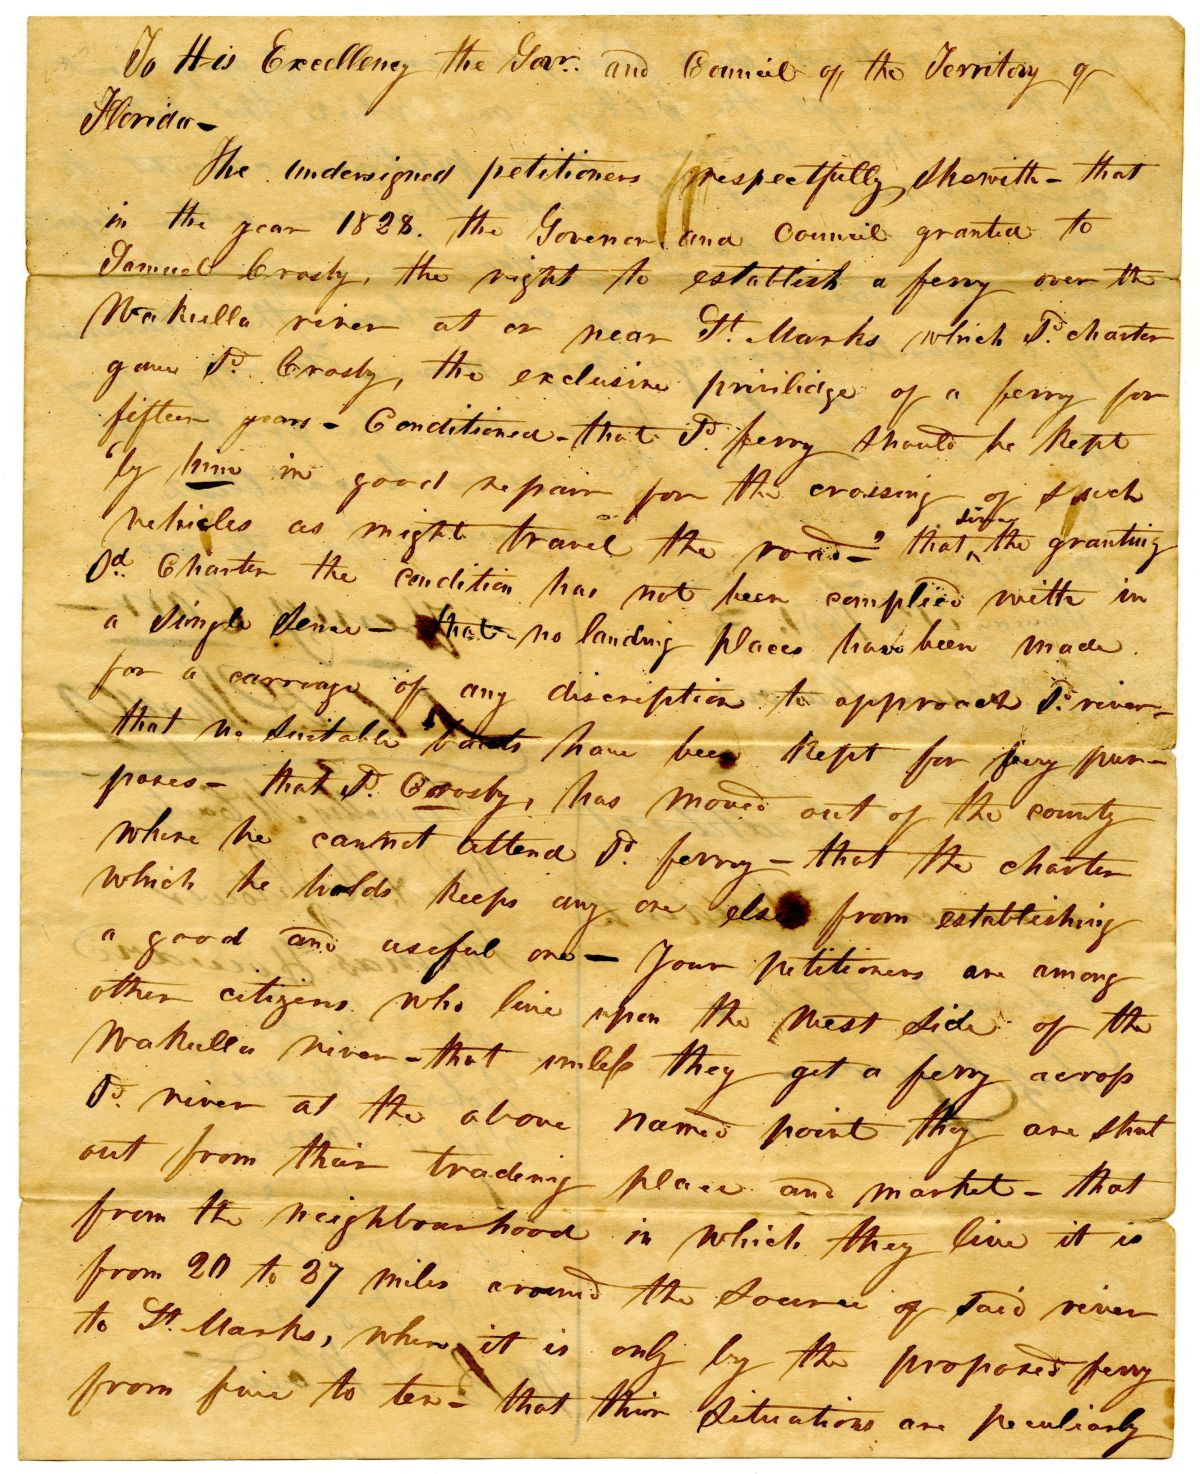 To His Excellency the Govr. and Council of the Territory of
Florida-
The undersigned petitioners respectfully shewith - that
in the year 1828. the Govenor and Council granted to
Samuel Crosby, the right to establish a ferry over the
Wakulla river at or near St. Marks which Sd. charter
gave Sd. Crosby, the exclusive privilidge of a ferry for
fifteen years - Conditioned - that Sd ferry should be kept
"by him in good repair for the crossing of such
vehicles as might travel the road -" that since the granting
Sd. Charter the condition has not been complied with in
a single sence - that no landing places have been made
for a carriage of any discription to approach Sd. river -
that no suitable boats have been kept for fery pur-
poses - that Sd. Crosby, has moved out of the county
where he cannot attend Sd. ferry - that the charter
which he holds keeps any one else from establishing
a good and useful one - Your petitioners are among
other citizens who live upon the West side of the
Wakulla river - that unless they get a ferry across
Sd. river at the above named point they are shut
out from thair trading place and market - that
from the neighbourhood in which they live it is
from 20 to 27 miles around the source of said river
to St. Marks, when it is only by the proposed ferry
from five to ten - that thier situations are peculiarly